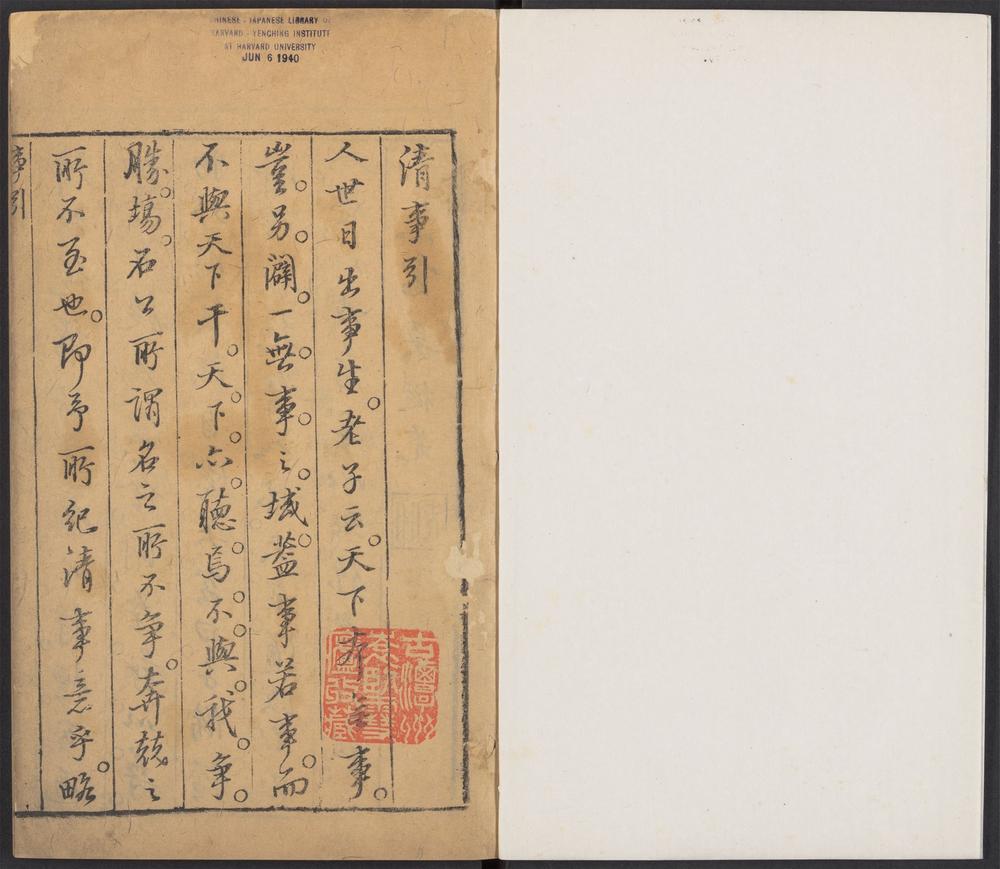 CHINESE - JAPANESE LIBRARY OF
HARVARD - YENCHING INSTITUTE
AT HARVARD UNIVERSITY
JUN 6 1940
清事引
人世日出事生。老子云。天下夲无事。
豈。另。闢。一無。事。之。域。蓋事若事。而
不與天下干。天。下。亦。聽。焉。不。與。我。爭。
勝。場。名公所謂名之所不爭。奔競之
所不至也。即予所紀清事意乎。略
事引
古潭州
袁臥雪
廬收藏